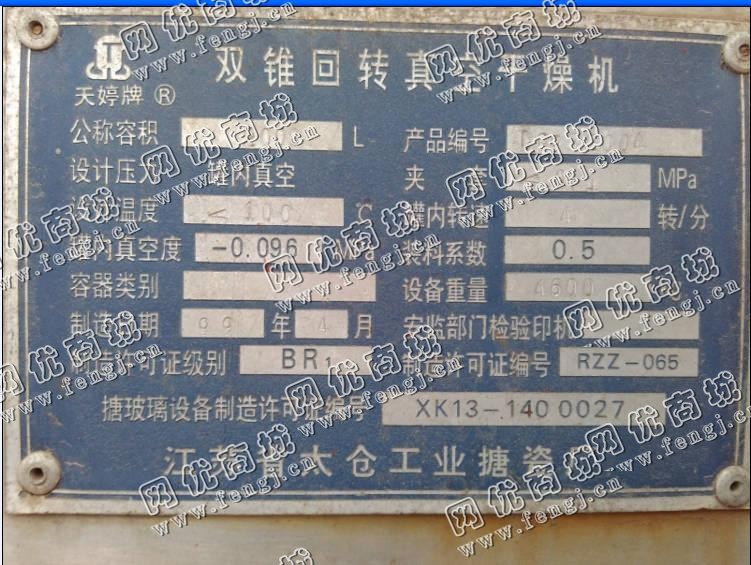 双锥回转真空干燥机
天婷牌 ®
公称容积 L 产品编号
设计压力 罐内真空 夹 MPa
设计温度 <100 ℃ 罐内转速 转/分
罐内真空度 -0.096 MPa 装料系数 0.5
容器类别 设备重量 4600
制造日期 99 年 4 月 安监部门检验印
制造许可证级别 BR₁ 制造许可证编号 RZZ-065
搪玻璃设备制造许可证编号 XK13-140 0027
江苏省太仓工业搪瓷
网优商城
www.fengj.cn